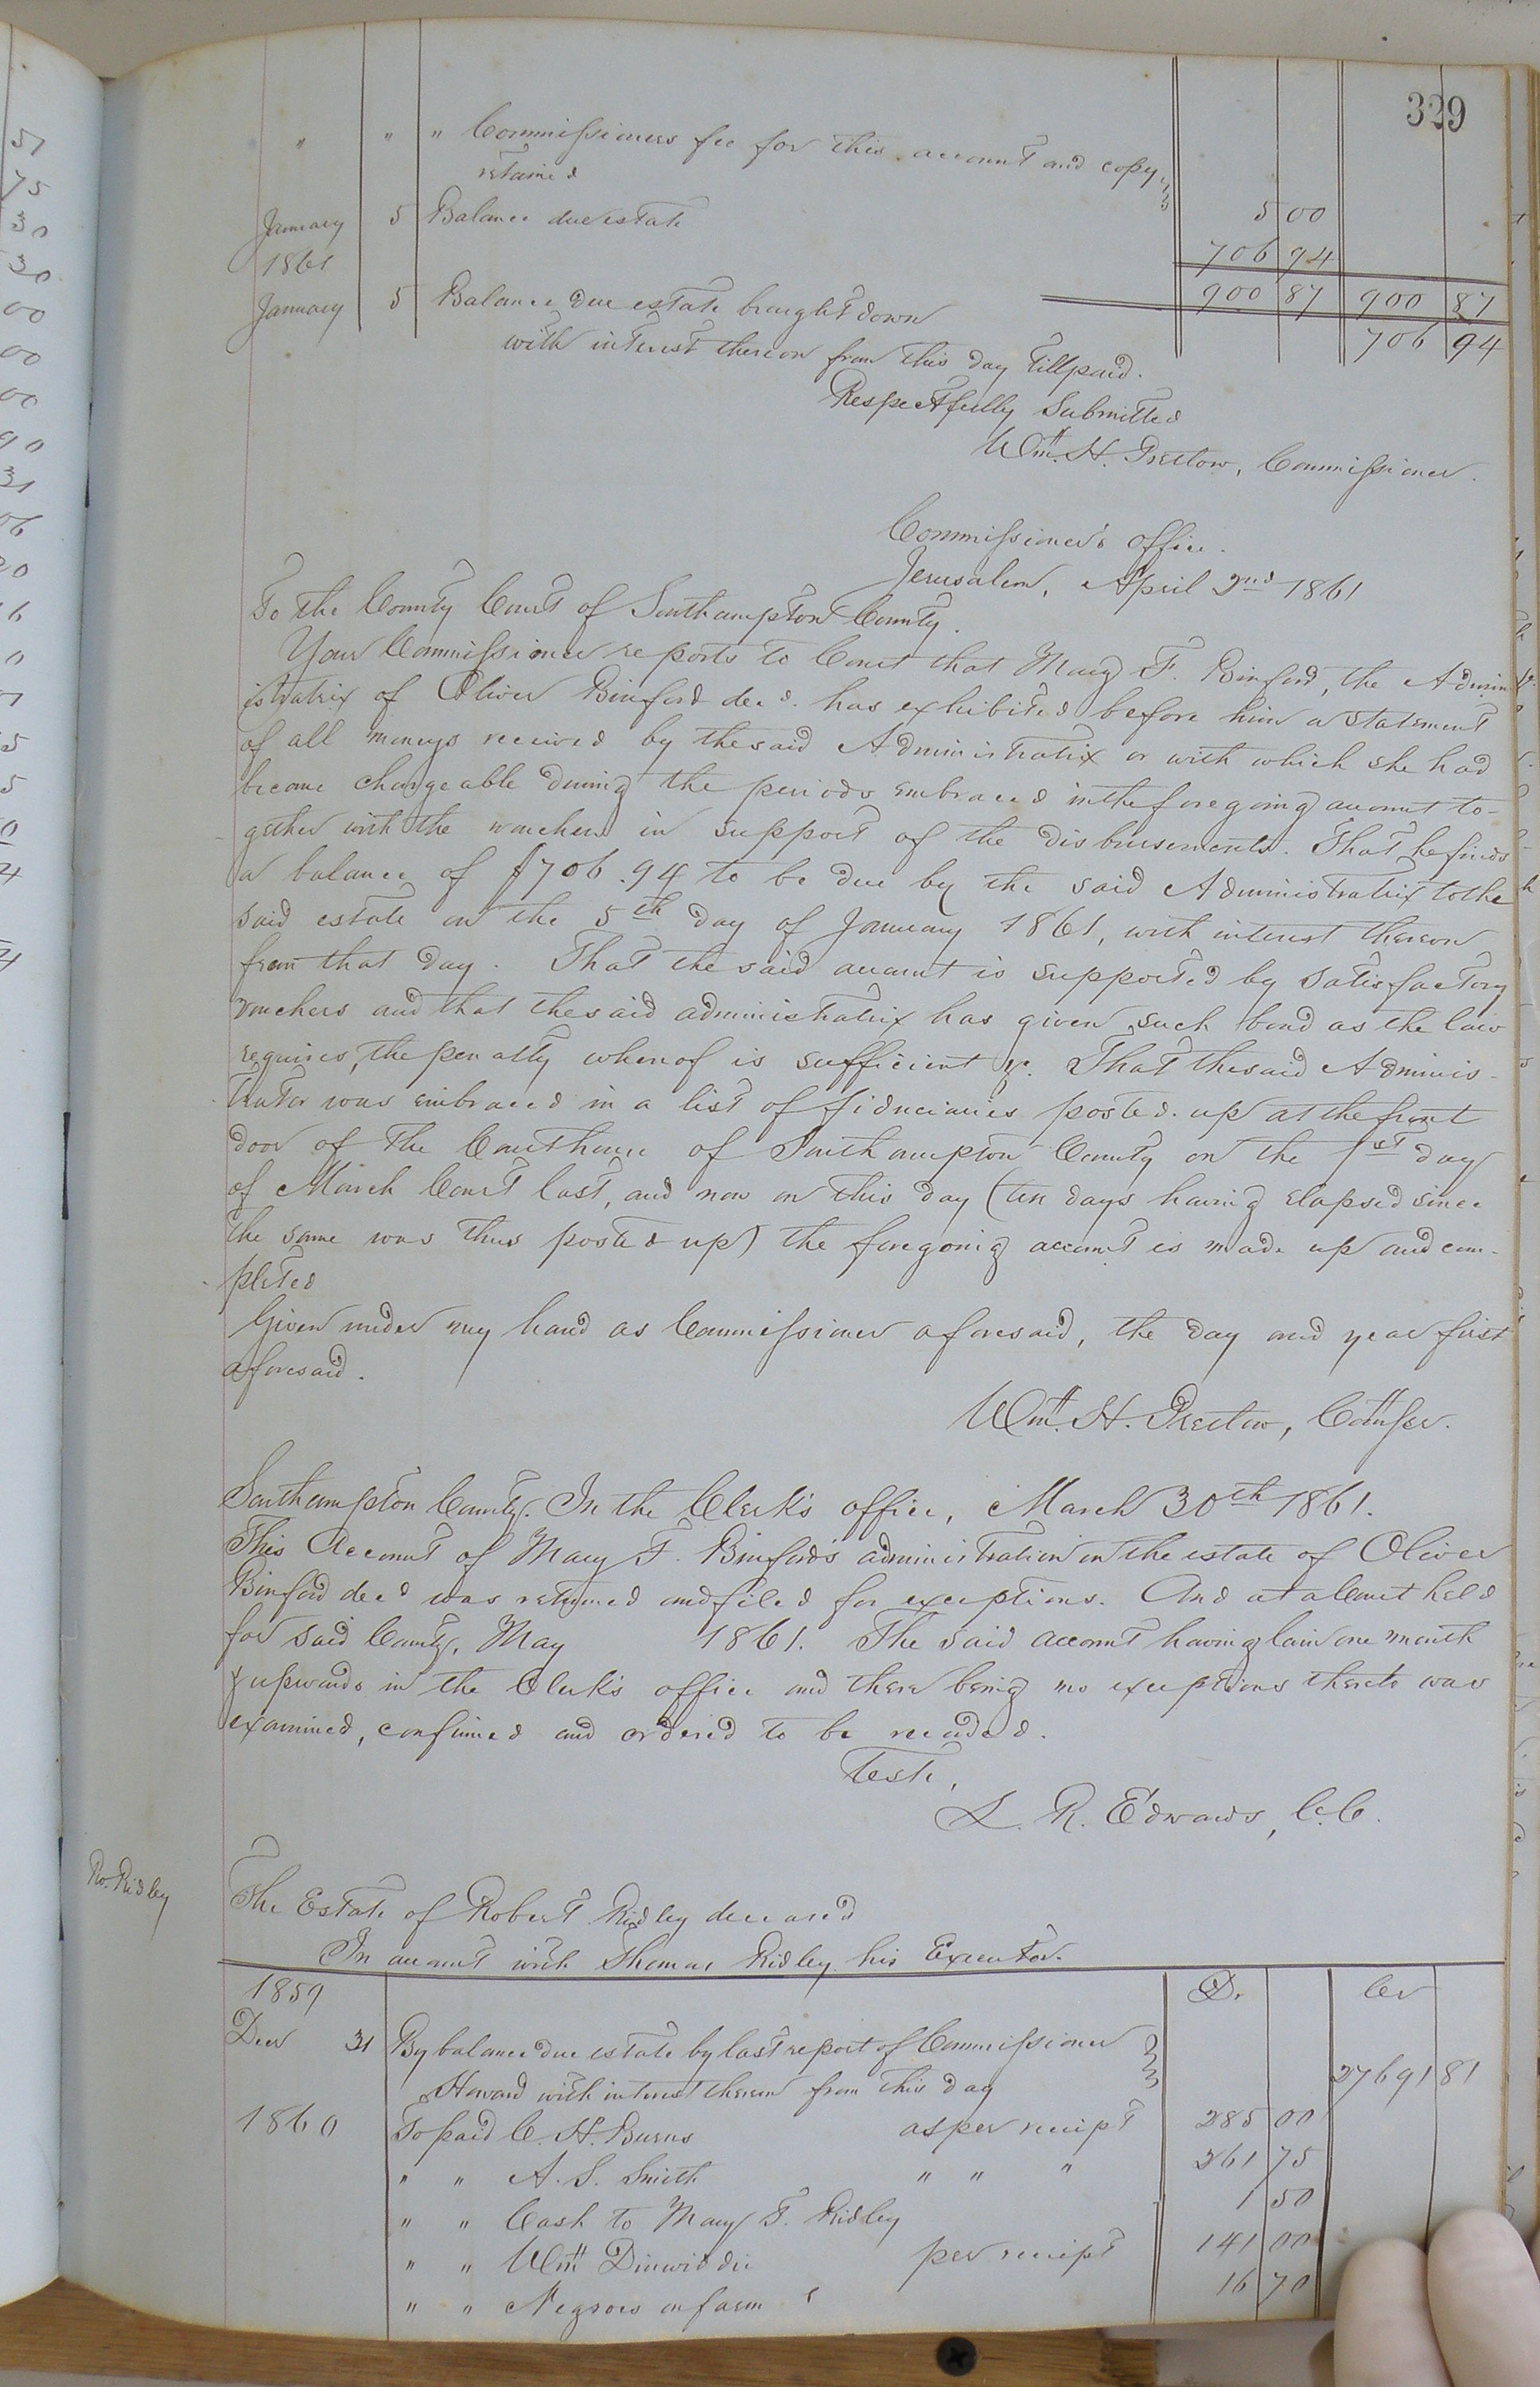 329
" " " Commissioners fee for this account and copy
retained 5 00
January 5 Balance due estate 706 94
1861 900 87 900 87
January 5 Balance due estate brought down 706 94
with interest thereon from this day till paid.
Respectfully Submitted
Wm. H. Pretlow, Commissioner.
Commissioner's office.
Jerusalem, April 2nd 1861
To the County Court of Southampton County.
Your Commissioner reports to Court that Mary F. Binford, the Admin
istratrix of Oliver Binford decd. has exhibited before him a statement
of all moneys received by the said Administratrix or with which she had
become chargeable during the periods embraced in the foregoing account to-
gether with the vouchers in support of the disbursements. That he finds
a balance of $706.94 to be due by the said Administratrix to the
said estate on the 5th day of January 1861, with interest thereon
from that day. That the said account is supported by satisfactory
vouchers and that the said administratrix has given such bond as the law
requires, the penalty whereof is sufficient &c. That the said Adminis-
trator was embraced in a list of fiduciaries posted up at the front
door of the Courthouse of Southampton County on the 1st day
of March Court last, and now on this day (ten days having elapsed since
the same was thus posted up) the foregoing account is made up and com-
pleted
Given under my hand as Commissioner aforesaid, the day and year first
aforesaid.
Wm. H. Pretlow, Commsser.
Southampton County. In the Clerk's office, March 30th 1861.
This Account of Mary F. Binford's administration on the estate of Oliver
Binford decd was returned and filed for exceptions. And at a Court held
for said County, May 1861. The said account having lain one month
& upwards in the Clerk's office and there being no exceptions thereto was
examined, confirmed and ordered to be recorded.
Teste,
L. R. Edwards, C.C.
Ro. Ridley
The Estate of Robert Ridley deceased
In account with Thomas Ridley his Executor.
1859 Dr. Cr
Decr 31 By balance due estate by last report of Commissioner
Howard with interest thereon from this day 27691 81
1860 To paid C. H. Burns as per receipt 285 00
" " A. S. Smith " " " 261 75
" " Cash to Mary T. Ridley 1 50
" " Wm Dinwiddie per receipt 141 00
" " Negroes on farm 16 70
51
75
30
30
00
00
00
90
31
06